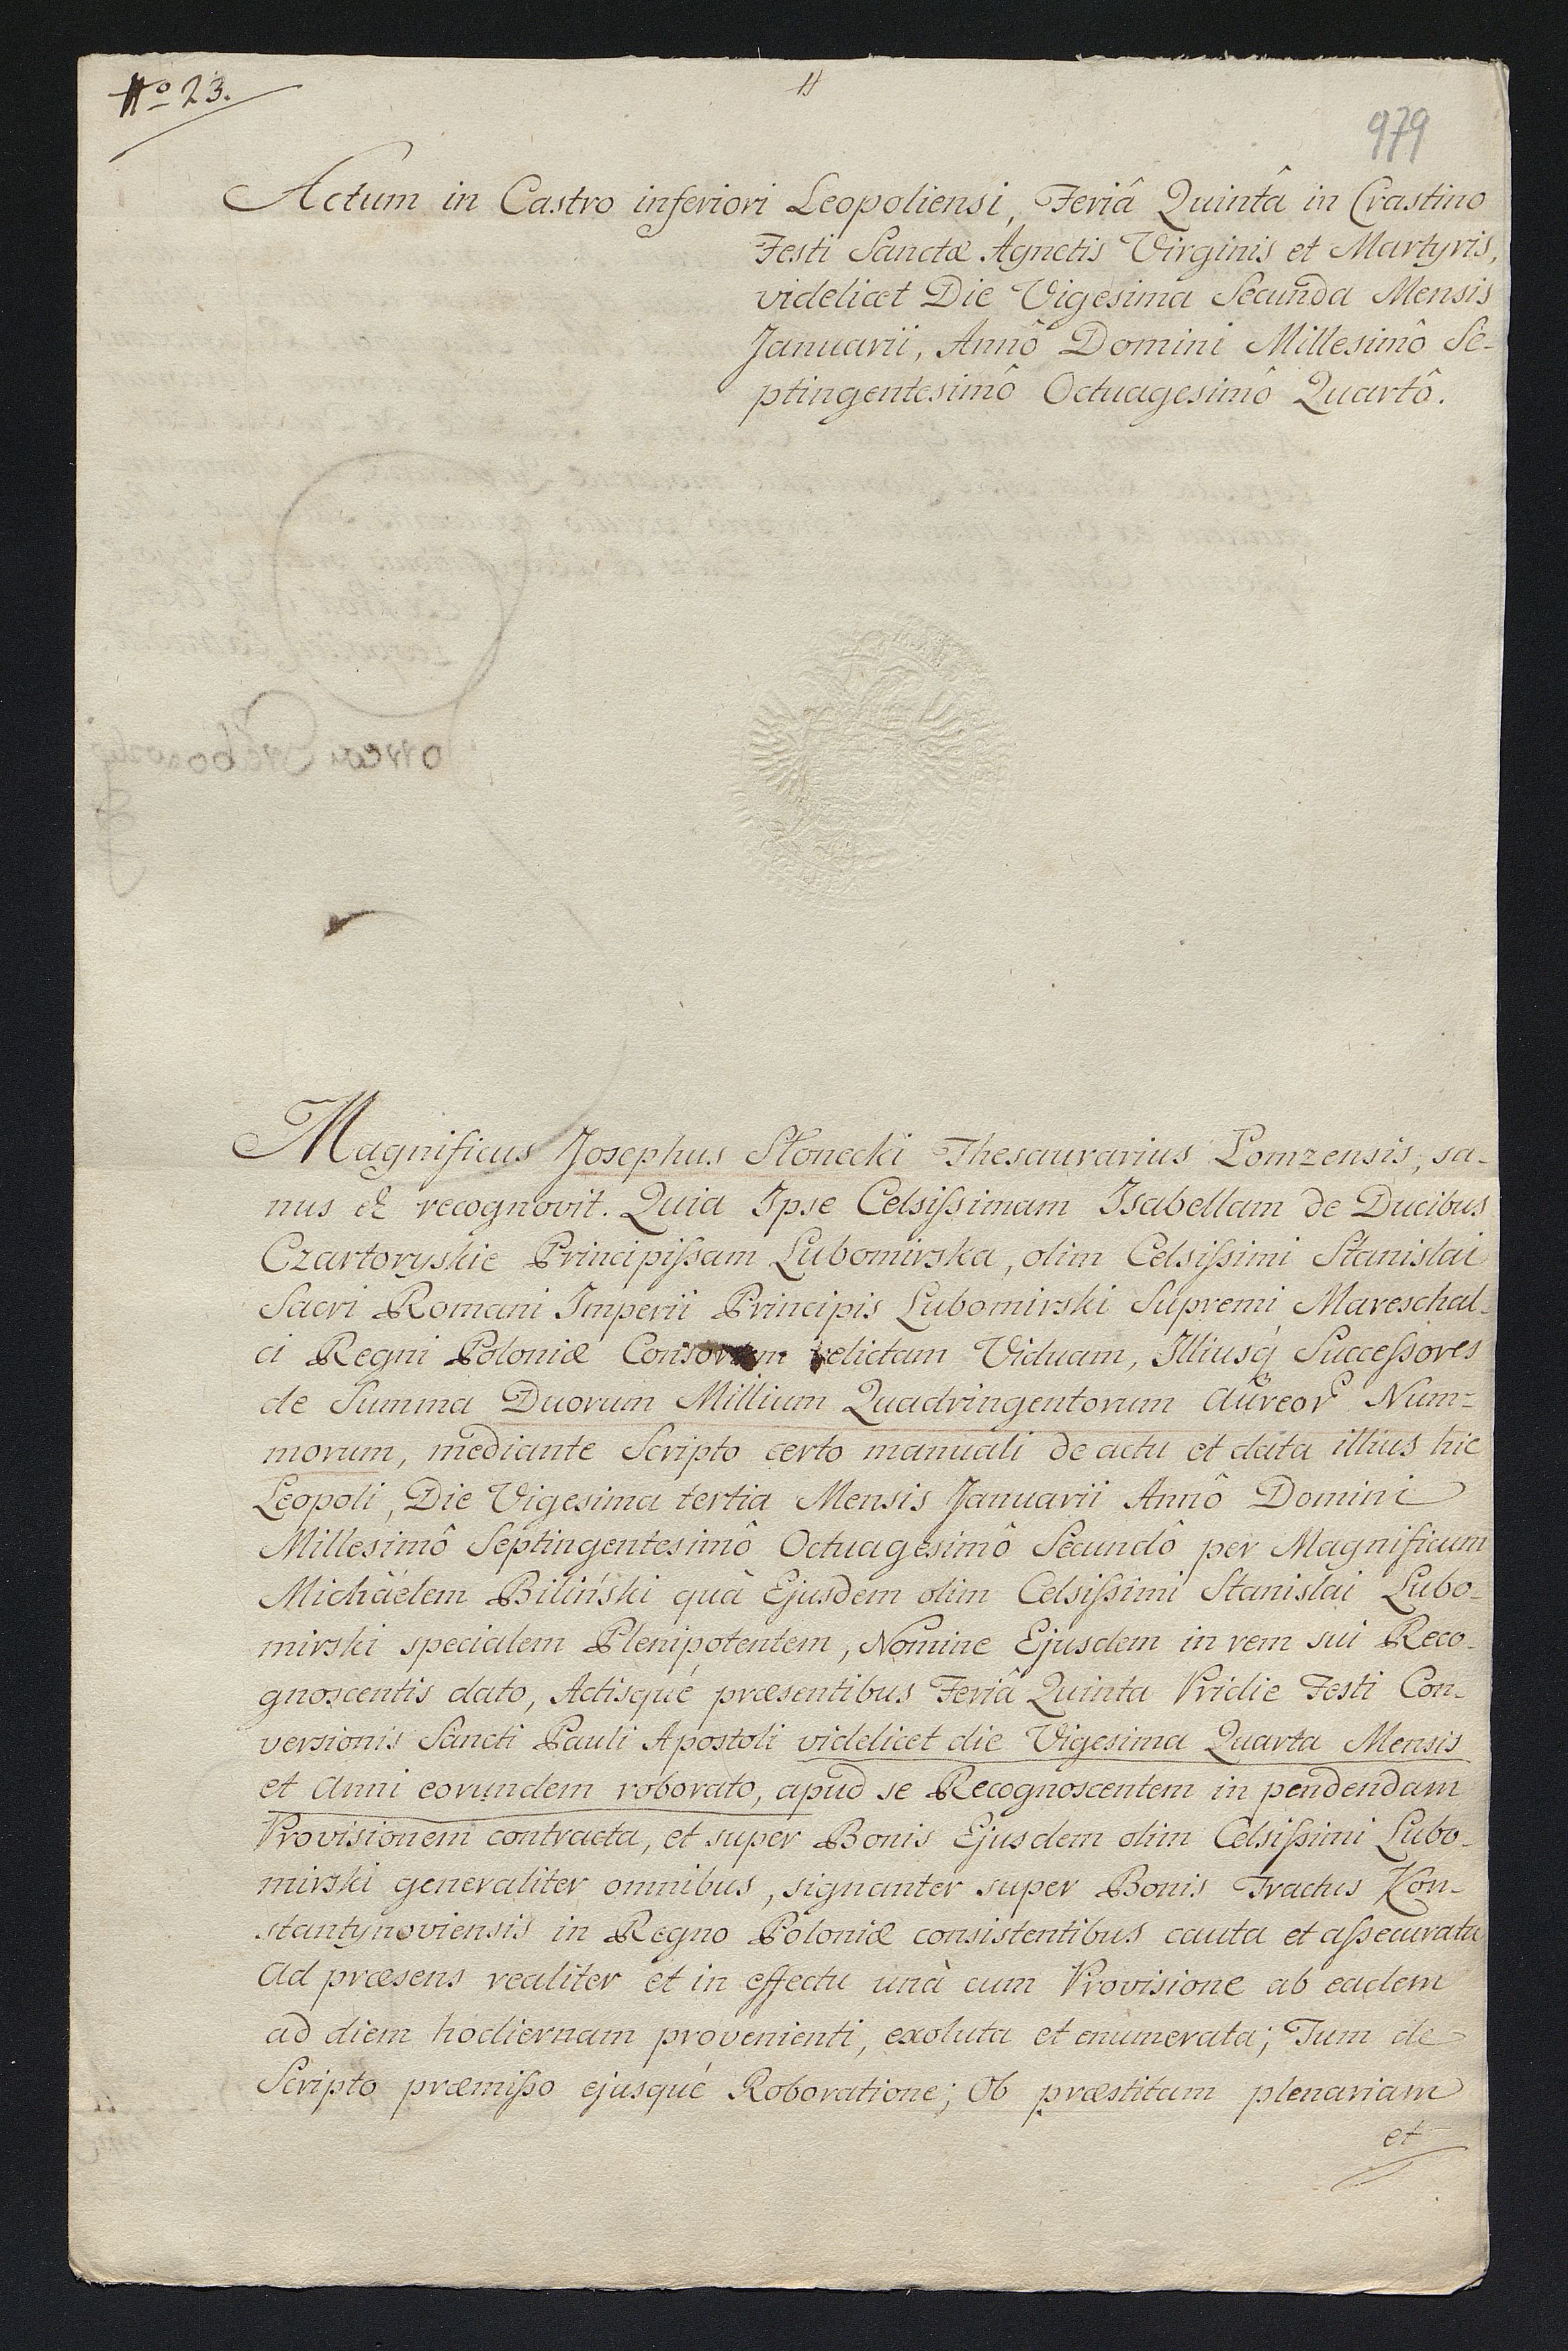 No 23.
979
Actum in Castro inferiori Leopoliensi, Feriâ Quintâ in Crastino
Festi Sanctæ Agnetis Virginis et Martyris,
videlicet Die Vigesima Secunda Mensis
Januarii, Annô Domini Millesimô Se-
ptingentesimô Octuagesimô Quartô.
Magnificus Josephus Słonecki Thesaurarius Łomzensis, sa-
nus & recognovit. Quia Ipse Celsissimam Isabellam de Ducibus
Czartoryskie Principissam Lubomirska, olim Celsissimi Stanislai
Sacri Romani Imperii Principis Lubomirski Supremi Mareschal-
ci Regni Poloniæ Consortem relictam Viduam, Illiusq Successores
de Summa Duorum Millium Quadringentorum Aureor Num-
morum, mediante Scripto certo manuali de actu et data illius hic
Leopoli, Die Vigesima tertia Mensis Januarii Annô Domini
Millesimô Septingentesimô Octuagesimô Secundô per Magnificum
Michäelem Biliński quà Ejusdem olim Celsissimi Stanislai Lubo-
mirski specialem Plenipotentem, Nomine Ejusdem in rem sui Reco-
gnoscentis dato, Actisqué præsentibus Feriâ Quinta Pridie Festi Con-
versionis Sancti Pauli Apostoli videlicet die Vigesima Quarta Mensis
et Anni eorundem roborato, apud se Recognoscentem in pendendam
Provisionem contracta, et super Bonis Ejusdem olim Celsissimi Lubo-
mirski generaliter omnibus, signanter super Bonis Tractus Kon-
stantynoviensis in Regno Poloniæ consistentibus cauta et assecurata
Ad præsens realiter et in effectu unà cum Provisione ab eadem
ad diem hodiernam provenienti, exoluta et enumerata; Tum de
Scripto præmisso ejusqué Roboratione; Ob præstitam plenariam
et